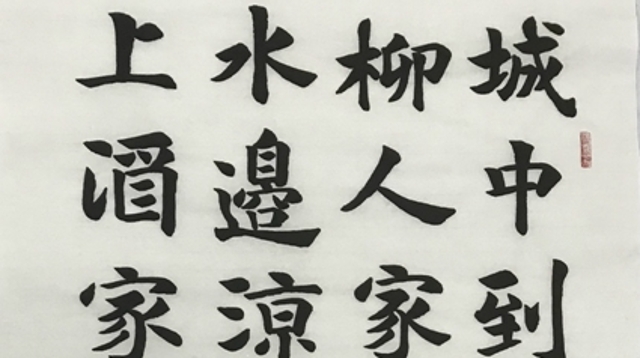 城中到
柳人家
水邊涼
上家